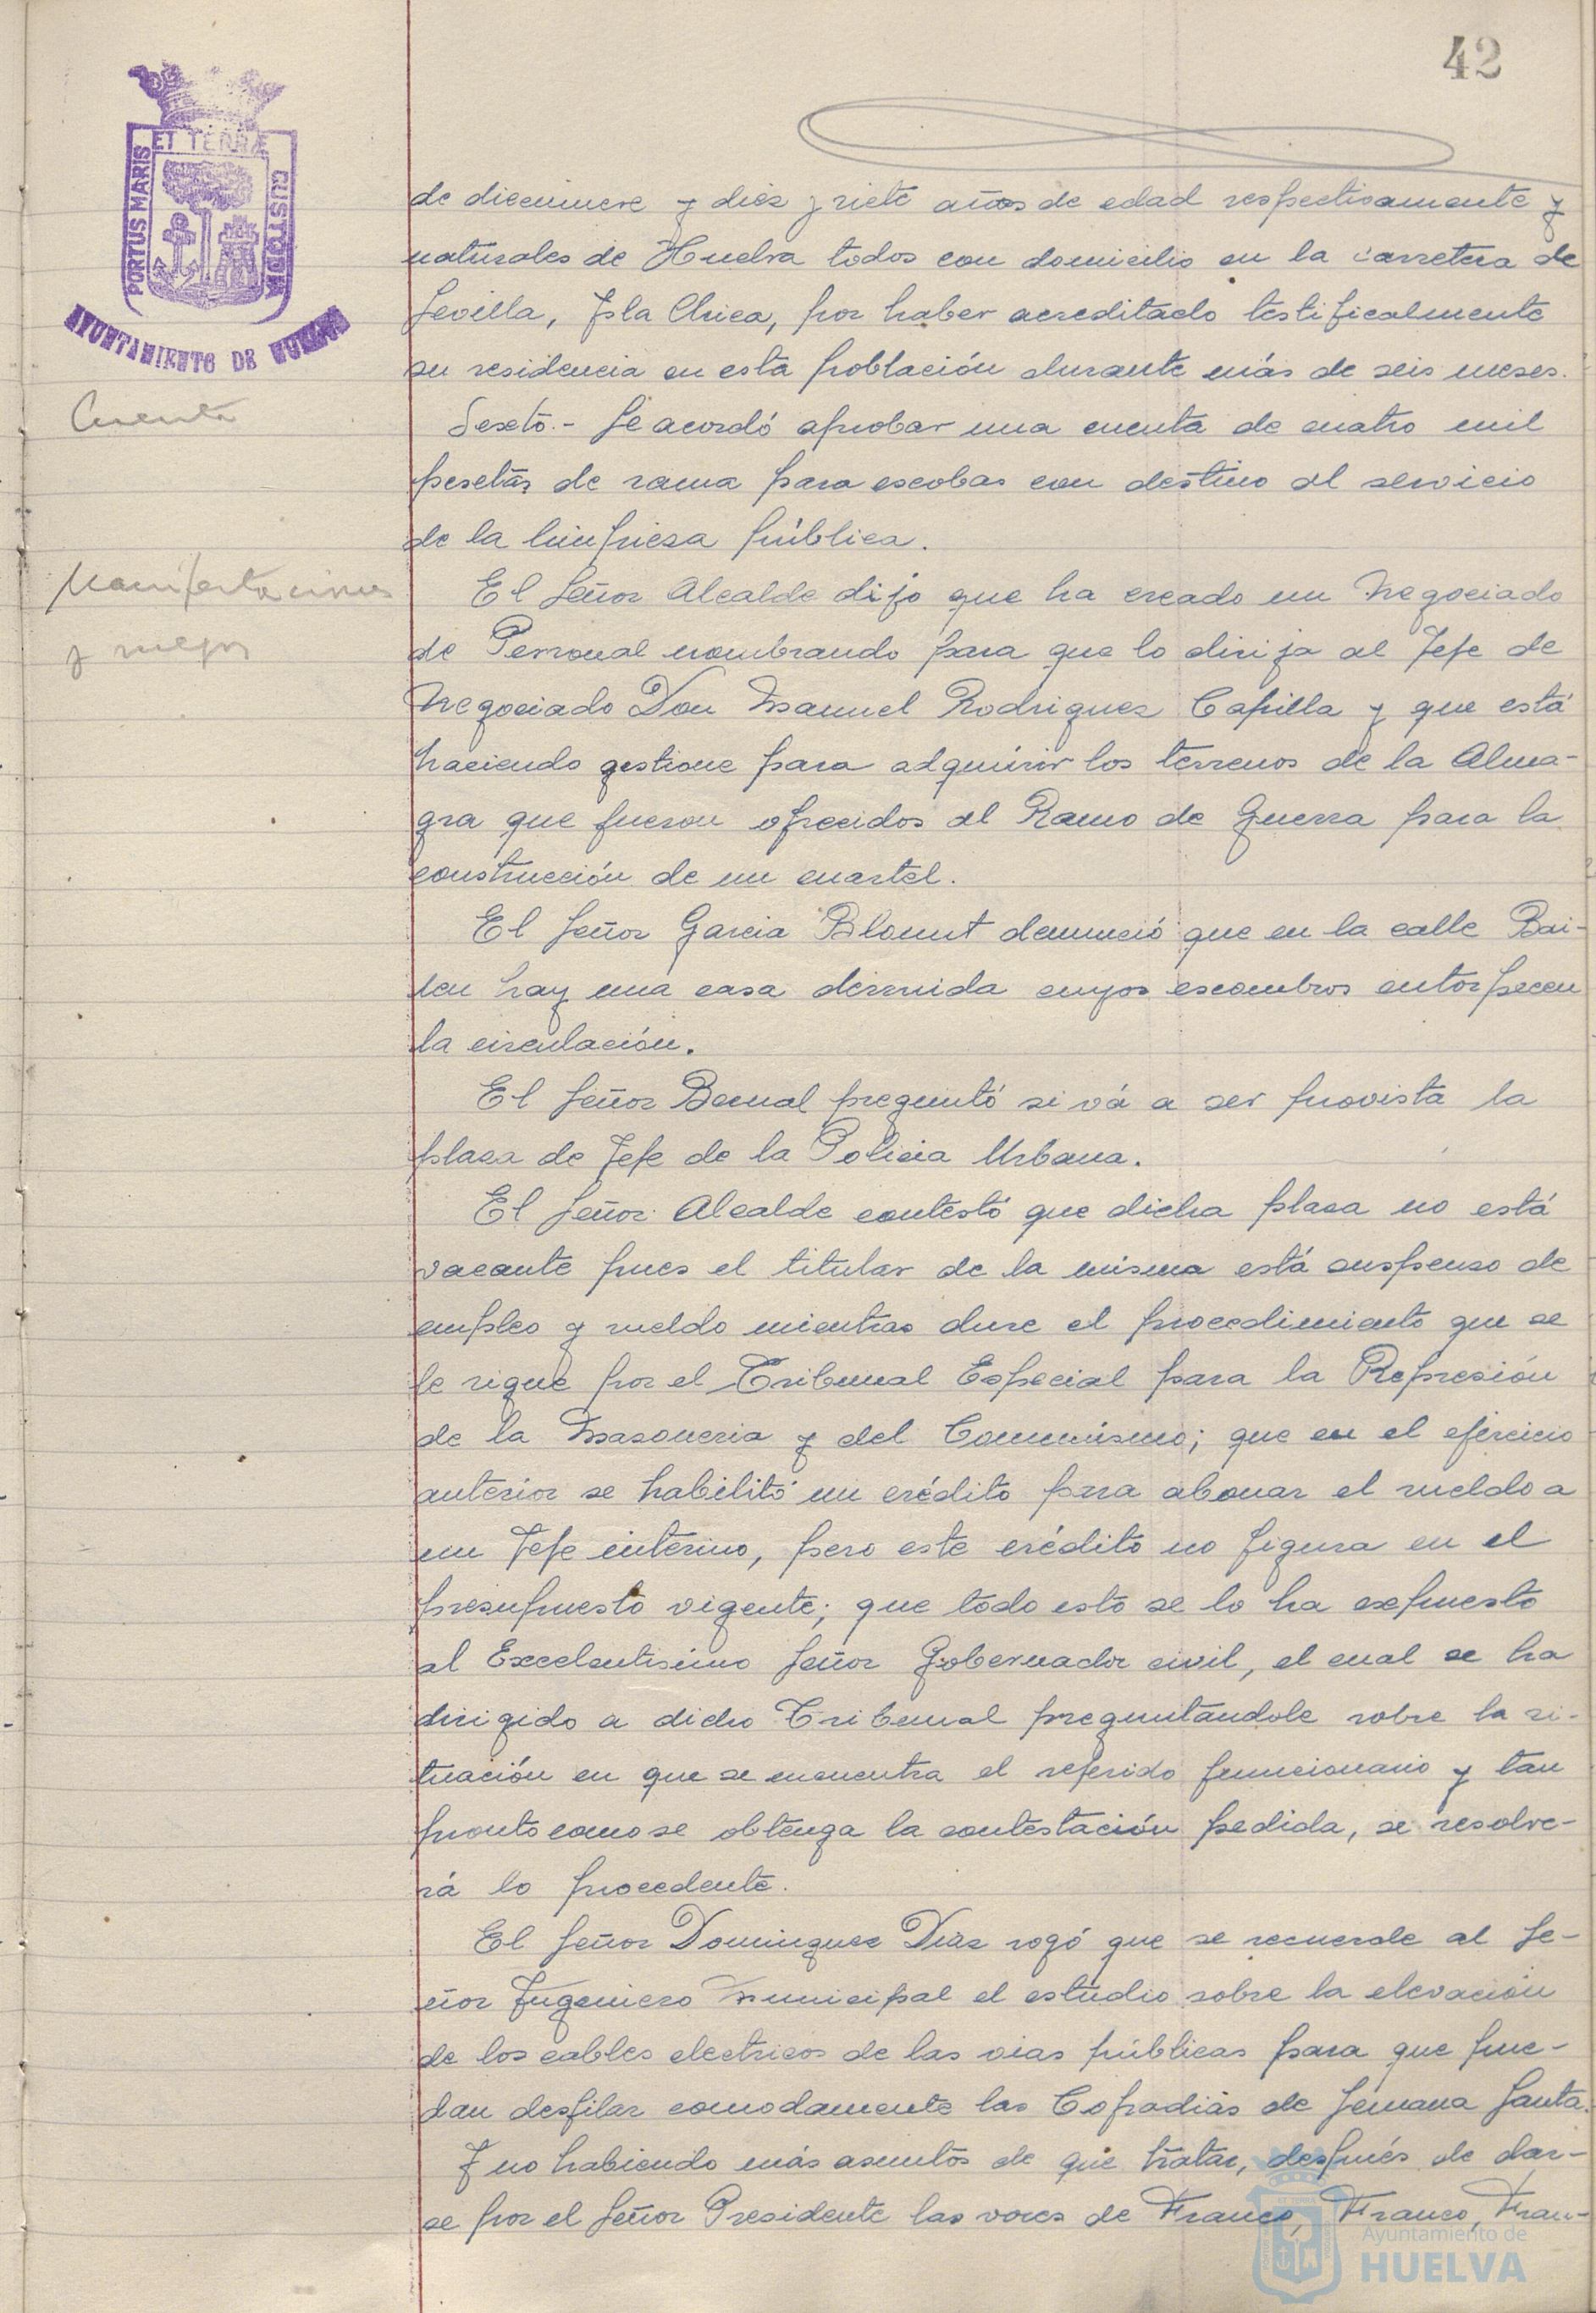 42
PORTUS MARIS ET TERRÆ CUSTODIA
AYUNTAMIENTO DE HUELVA
de diecinueve y diez y siete años de edad respectivamente y
naturales de Huelva todos con domicilio en la carretera de
Sevilla, Isla Chica, por haber acreditado testificalmente
su residencia en esta población durante más de seis meses.
Cuenta
Sexto.- Se acordó aprobar una cuenta de cuatro mil
pesetas de rama para escobas con destino al servicio
de la limpieza pública.
Manifestaciones
y ruegos
El Señor Alcalde dijo que ha creado un Negociado
de Personal nombrando para que lo dirija al Jefe de
Negociado Don Manuel Rodriguez Capilla y que está
haciendo gestione para adquirir los terrenos de la Alma-
gra que fueron ofrecidos al Ramo de Guerra para la
construcción de un cuartel.
El Señor Garcia Blount denunció que en la calle Bai-
len hay una casa derruida cuyos escombros entorpecen
la circulación.
El Señor Bernal preguntó si vá a ser provista la
plaza de Jefe de la Policia Urbana.
El Señor Alcalde contestó que dicha plaza no está
vacante pues el titular de la misma está suspenso de
empleo y sueldo mientras dure el procedimiento que se
le sigue por el Tribunal Especial para la Represión
de la Masoneria y del Comunismo; que en el ejercicio
anterior se habilitó un crédito para abonar el sueldo a
un Jefe interino, pero este crédito no figura en el
presupuesto vigente; que todo esto se lo ha expuesto
al Excelentisimo Señor Gobernador civil, el cual se ha
dirigido a dicho Tribunal preguntandole sobre la si-
tuación en que se encuentra el referido funcionario y tan
pronto como se obtenga la contestación pedida, se resolve-
rá lo procedente.
El Señor Dominguez Diaz rogó que se recuerde al Se-
ñor Ingeniero Municipal el estudio sobre la elevación
de los cables electricos de las vias públicas para que pue-
dan desfilar comodamente las Cofradias de Semana Santa.
Y no habiendo más asuntos de que tratar, después de dar-
se por el Señor Presidente las voces de Franco, Franco, Fran-
Ayuntamiento de
HUELVA